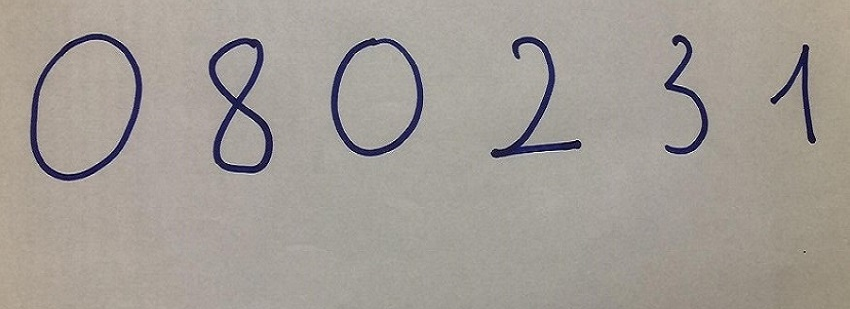 0 8 0 2 3 1